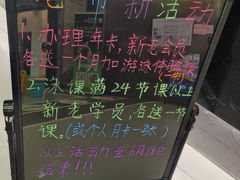 市新活动
1、办理年卡,新老会员
各送一个月加游泳体验课
(一节)
2、泳课满24节课以上
新老学员,各送一节
课。(或个人月卡一张)
以上活动至6月18日
结束!!!